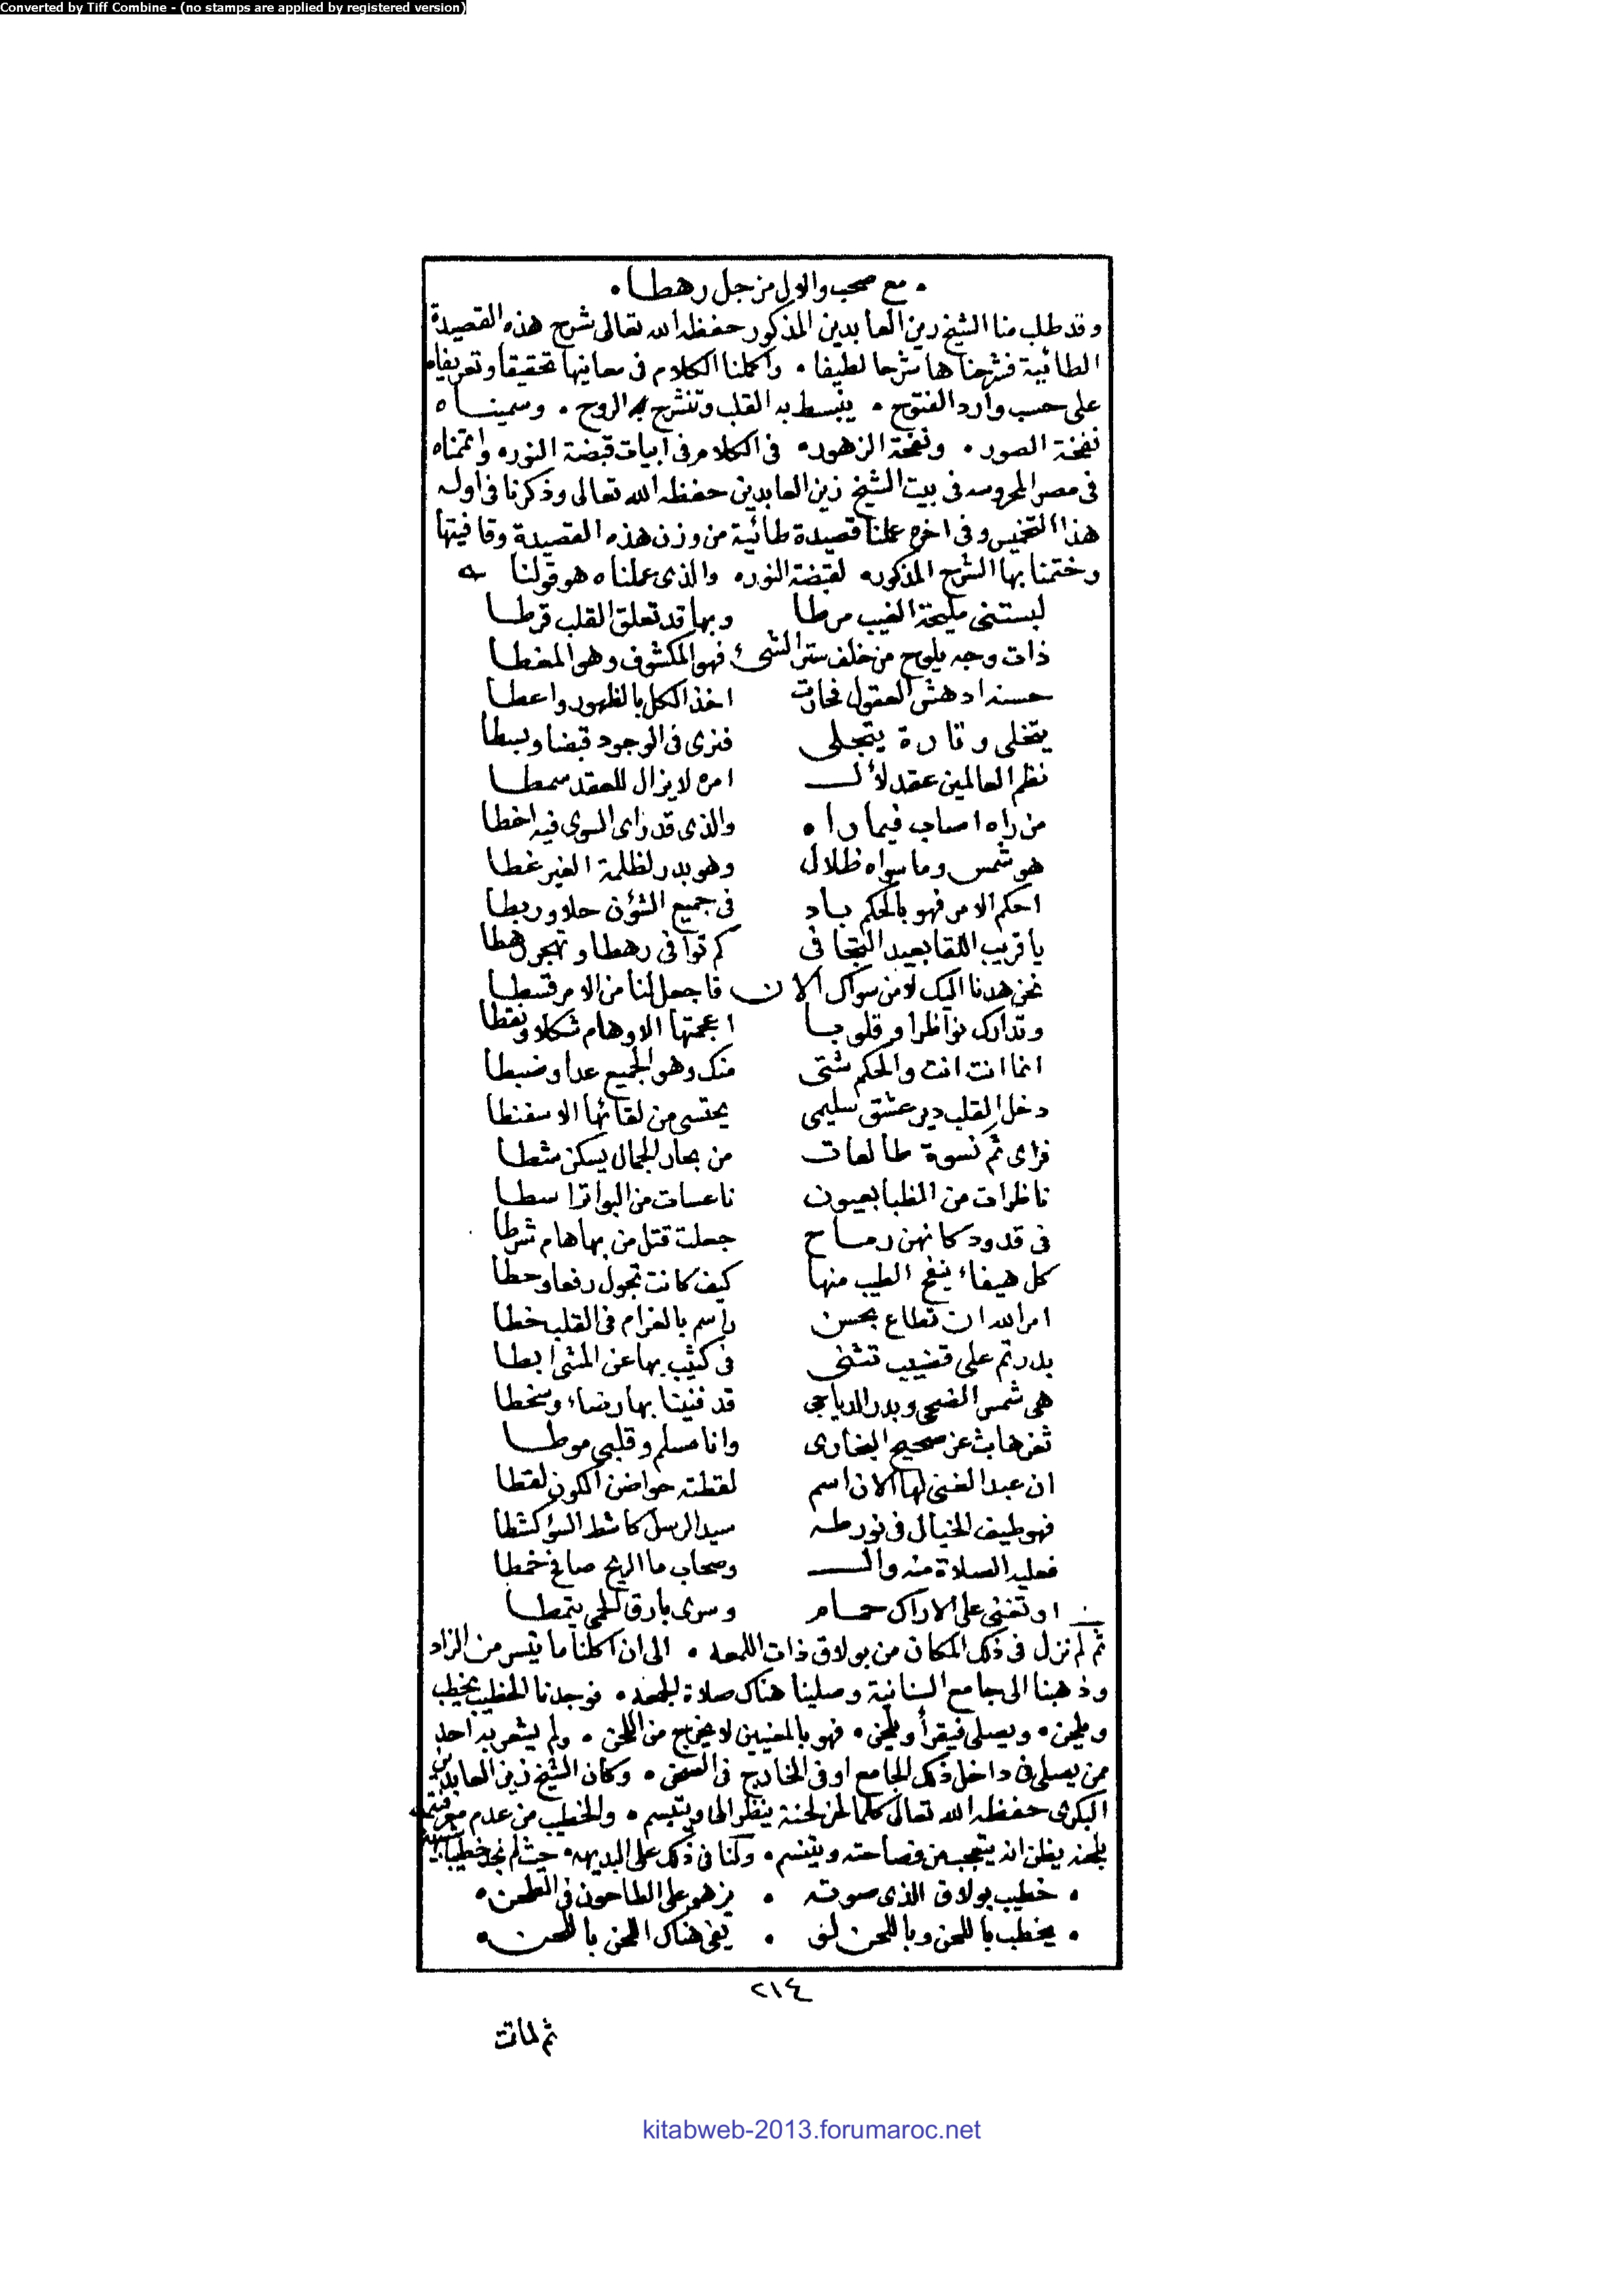 Converted by Tiff Combine - (no stamps are applied by registered version)
• مع صحب والاول من جل رهطا •
وقد طلب منا الشيخ زين العابدين المذكور حفظه الله تعالى شرح هذه القصيدة
الطائية فشرحناها شرحا لطيفا • واكملنا الكلام فى معانيها تحقيقا وتعريفا •
على حسب وارد الفتوح • ينبسط به القلب وتنشرح به الروح • وسميناه
نفخة الصور • ونفحة الزهور • فى الكلام على ابيات قبضة النور • واتممناه
فى مصر المحروسه فى بيت الشيخ زين العابدين حفظه الله تعالى وذكرنا فى اوله
هذا التخميس وفى اخره عملنا قصيدة طائية من وزن هذه القصيدة وقافيتها
وختمنا بها الشرح المذكور • لقبضة النور • والذى عملناه هو قولنا
لبستنى مليحة الغيب مرطا وبها قد تعلق القلب قرطا
ذات وجه يلوح من خلف ستر الشىء فهو المكشوف وهو المغطا
حسنه ادهش العقول فحارت اخذ الكل بالظهور واعطا
يتخلى وتارة يتجلى فنرى فى الوجود قبضا وبسطا
نظم العالمين عقد لآل امره لا يزال للعقد سمطا
من راه اصاب فيما راه والذى قد راى السوى فيه اخطا
هو شمس وما سواه ظلال وهو بدر لظلمة الغير غطا
احكم الامر فهو بالحكم باد فى جميع الشؤن حلا وربطا
يا قريب اللقا بعيد التجافى كم توافى رهطا وتهجر رهطا
نحن هدنا اليك لا من سواك الان فاجعل لنا من الامر قسطا
وتدارك نواظرا وقلوبا اعجمتها الاوهام شكلا ونقطا
انما انت انت والحكم شتى منك وهو الجميع عدا وضبطا
دخل القلب دير عشق سليمى يحتسى من لقائها الاسفنطا
فراى ثم نسوة طالعات من بحار الجمال يسكن شطا
ناظرات من الظبا بعيون ناعسات من البواتر اسطا
فى قدود كانهن رماح جعلت قتل من بها هام شرطا
كل هيفاء ينفح الطيب منها كيف كانت تجول رفعا وحطا
امر الله ان تطاع بحسن راسم بالغرام فى القلب خطا
بدر تم على قضيب تثنى فى كثيب بها عن المشى ابطا
هى شمس الضحى وبدر الدياجى قد فنينا بها رضاء وسخطا
ثغرها بث عن صحيح البخارى وانا مسلم وقلبى موطا
ان عبد الغنى لها الان اسم لقطته حواضن الكون لقطا
فهو طيف الخيال فى نور طه سيد الرسل كاشط السؤ كشطا
فعليه الصلاة منه وال وصحاب ما الريح صافح خمطا
او تغنى على الاراك حمام وسرى بارق الحمى يتمطا
ثم لم نزل فى ذلك المكان من بولاق ذات اللمعه • الى ان اكلنا ما تيسر من الزاد
وذهبنا الى جامع السنانية وصلينا هناك صلاة الجمعه • فوجدنا الخطيب يخطب
ويلحن • ويصلى فيقرأ ويلحن • فهو بالمعنيين لا يخرج من اللحن • ولم يشعر به احد
ممن يصلى فى داخل ذلك الجامع او فى الخارج فى الصحن • وكان الشيخ زين العابدين
البكرى حفظه الله تعالى كلما لحن لحنة ينظر الى ويتبسم • والخطيب من عدم معرفته
بلحنه يظن انه يتعجب من فصاحته ويتنسم • وقلنا فى ذلك على البديهه • حيث لم نجد خطيبا
• خطيب بولاق الذى صوته • يزهو على الطاحون فى الطحن •
• يخطب باللحن وباللحن لف • يفى هناك اللحن باللحن •
٢١٤
ثم لماتت
kitabweb-2013.forumaroc.net